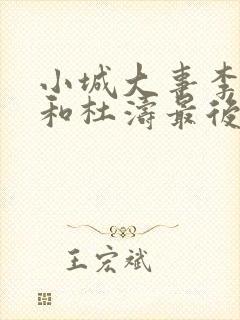 小城大喜李
和杜濤最後
王宏斌